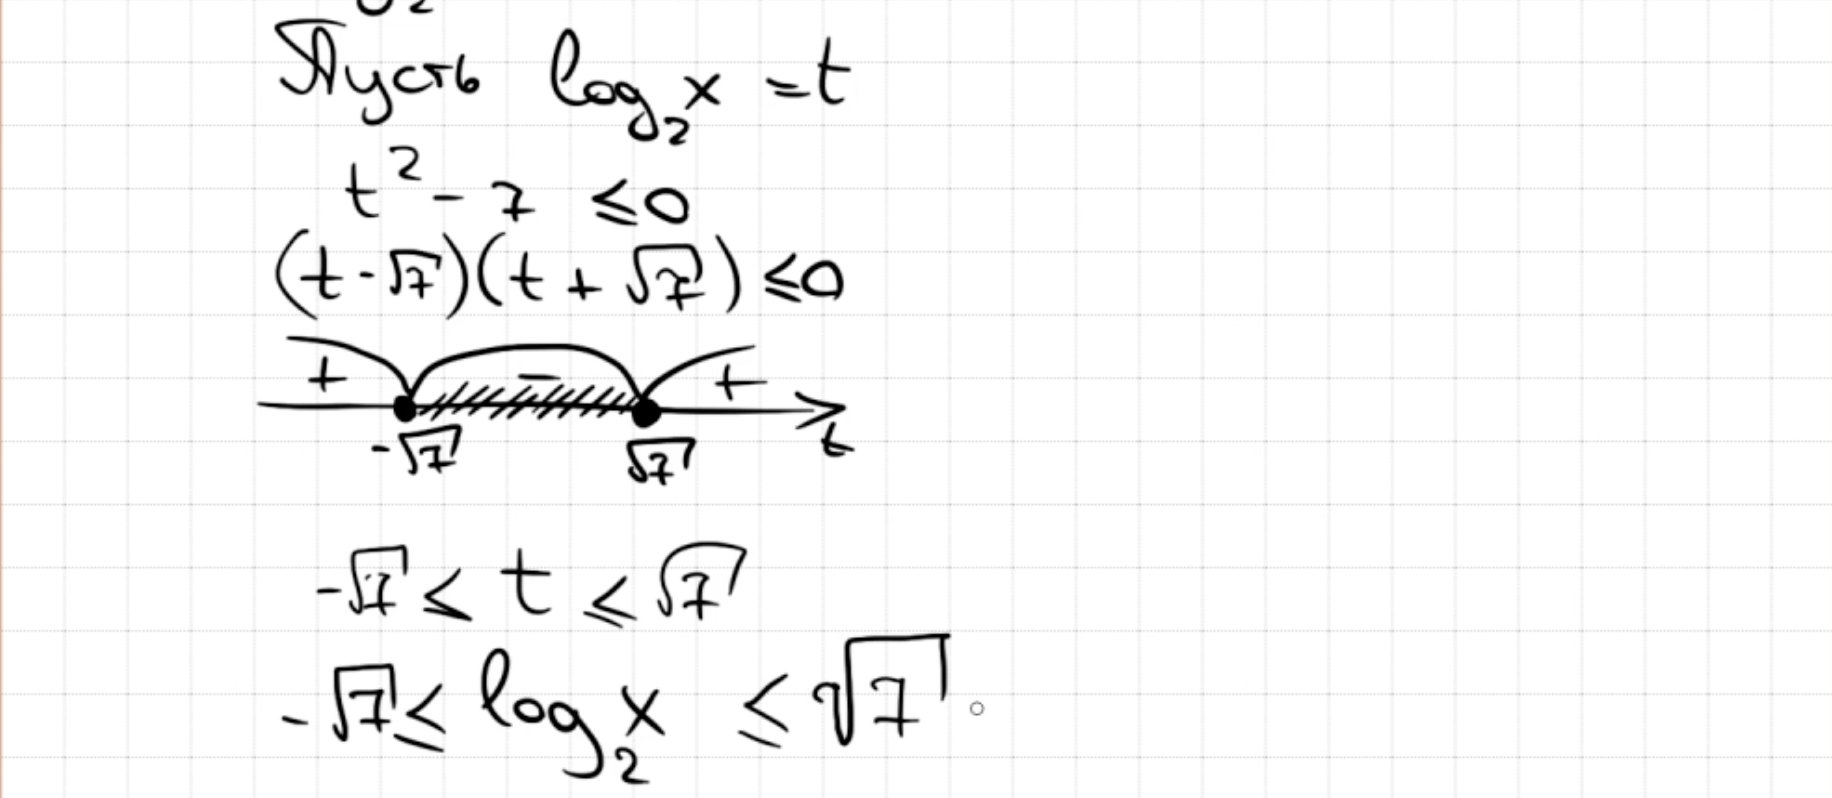 Пусть log₂x = t
t² - 7 ≤ 0
(t - √7)(t + √7) ≤ 0
+ - +
-√7 √7 t
-√7 ≤ t ≤ √7
-√7 ≤ log₂x ≤ √7